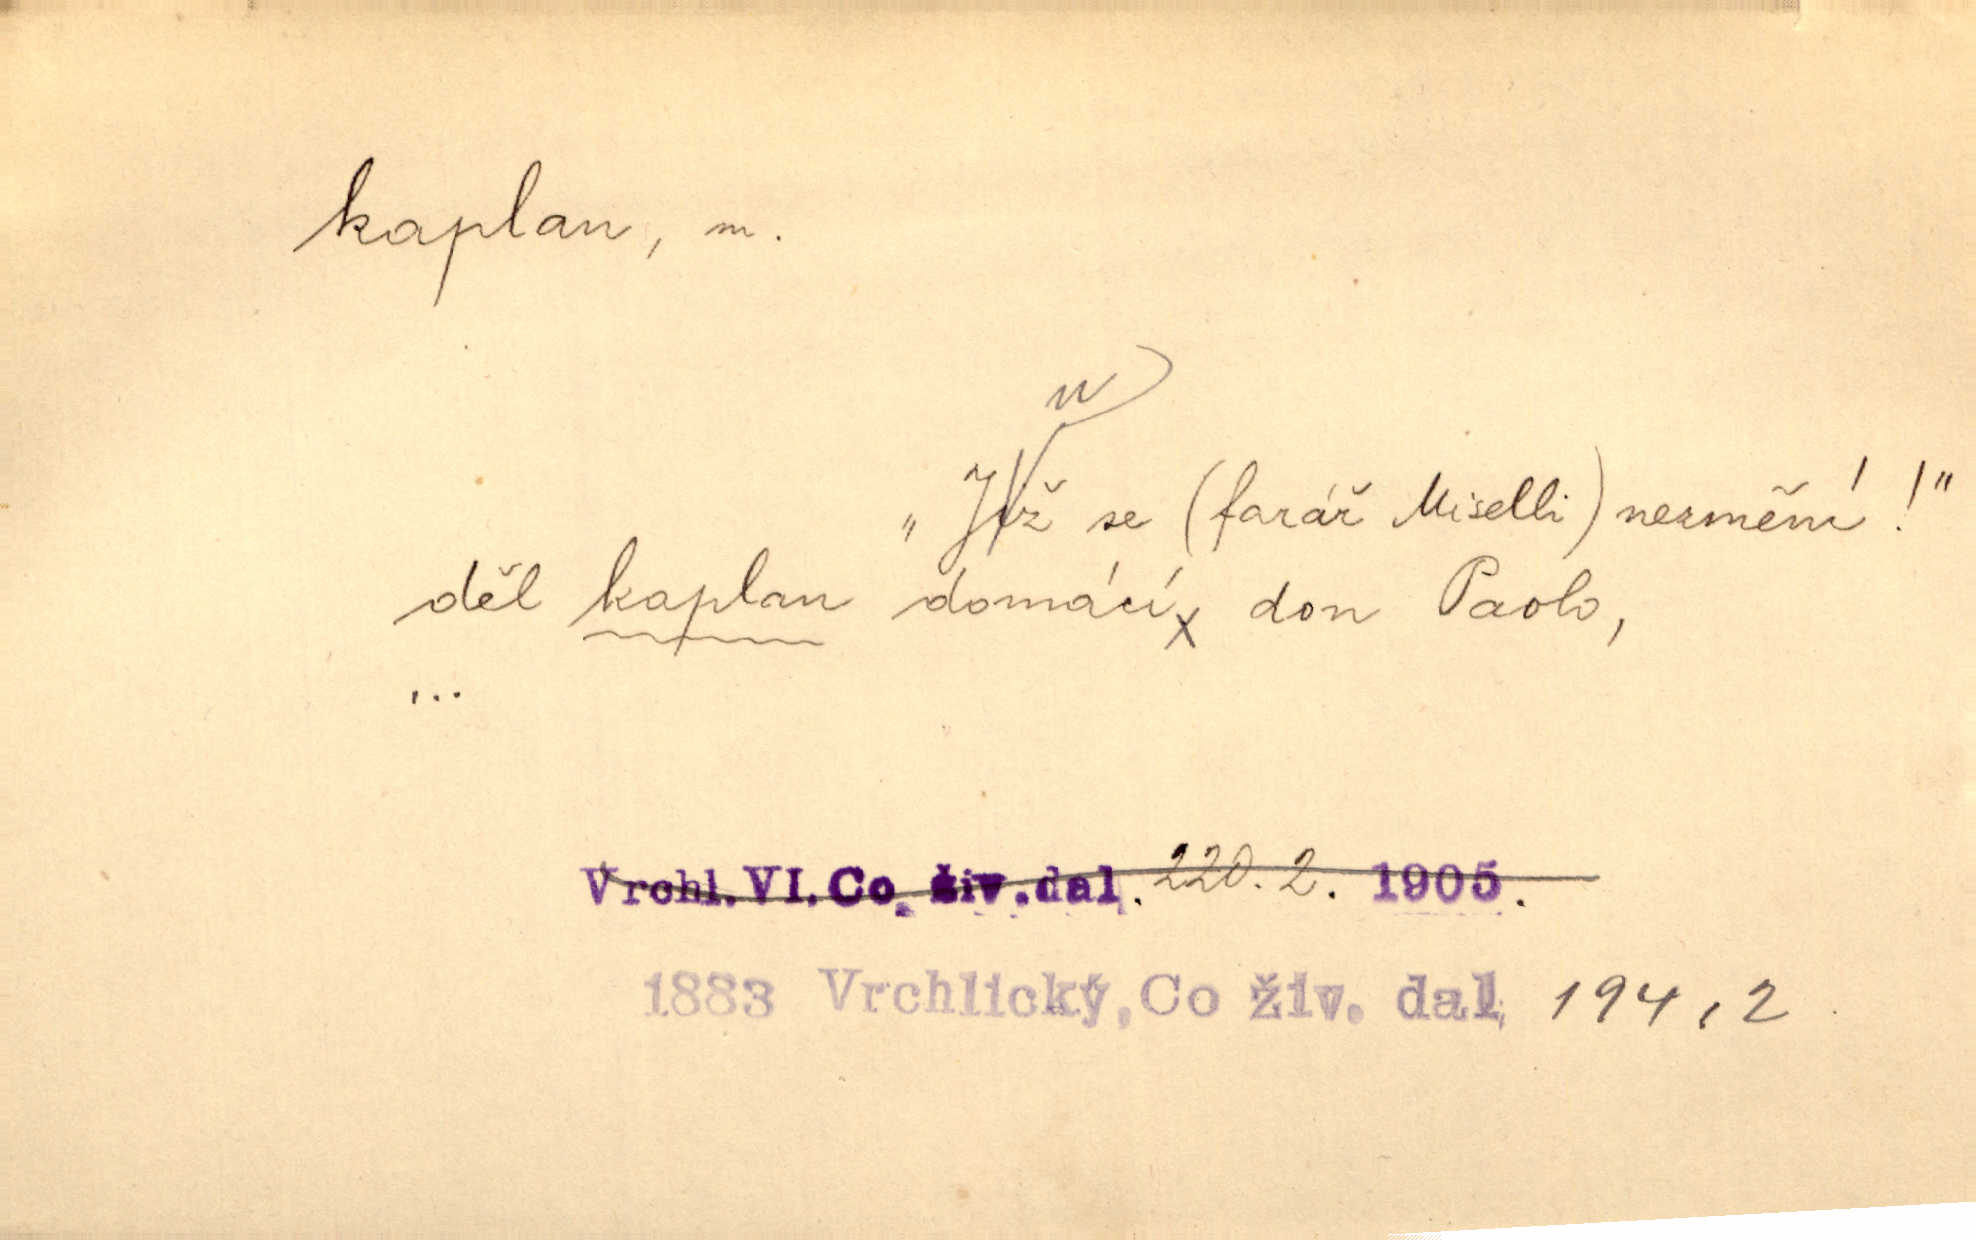 kaplan, m.
u
„Již se (farář Miselli) nezmění!"
děl kaplan domácí, don Paolo,
...
Vrchl. VI. Co živ. dal. 220. 2. 1905.
1883 Vrchlický, Co živ. dal, 194,2